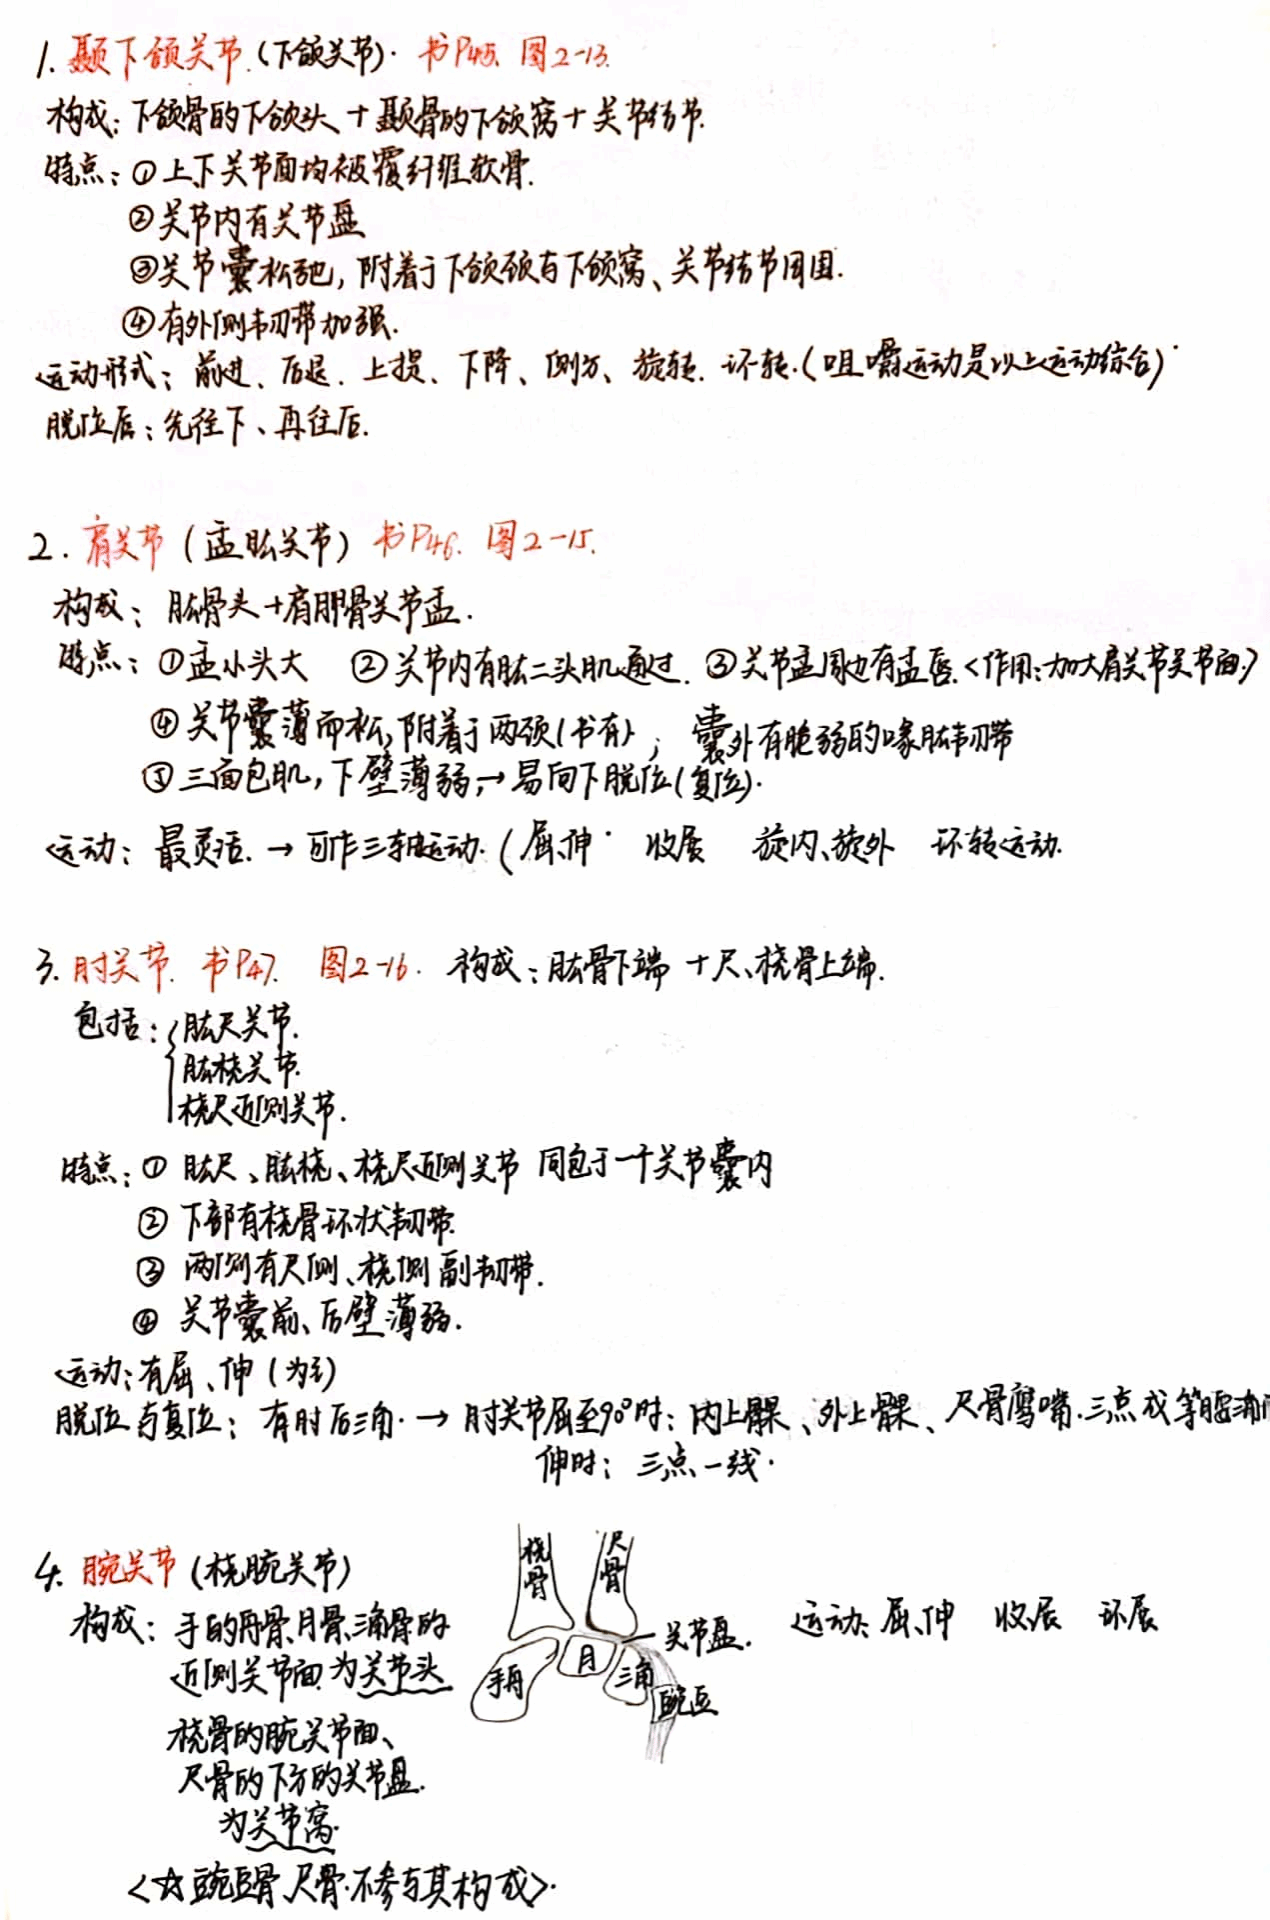 1. 颞下颌关节.(下颌关节)· 书P45. 图2-13.
构成：下颌骨的下颌头 + 颞骨的下颌窝 + 关节结节.
特点：①上下关节面均被覆纤维软骨.
②关节内有关节盘
③关节囊松弛，附着于下颌颈与下颌窝、关节结节周围.
④有外侧韧带加强.
运动形式：前进、后退、上提、下降、侧方、旋转、环转.(咀嚼运动是以上运动综合)
脱位后：先往下、再往后.
2. 肩关节 (盂肱关节) 书P46. 图2-15.
构成：肱骨头+肩胛骨关节盂.
特点：①盂小头大 ②关节内有肱二头肌通过. ③关节盂周边有盂唇.<作用：加大肩关节关节面.>
④关节囊薄而松，附着于两颈(书有)；囊外有脆弱的喙肱韧带
⑤三面包肌，下壁薄弱，→易向下脱位(复位).
运动：最灵活. →可作三轴运动.(屈、伸· 收展 旋内、旋外 环转运动.
3. 肘关节. 书P47. 图2-16. 构成：肱骨下端 + 尺、桡骨上端.
包括：{肱尺关节.
肱桡关节.
桡尺近侧关节.
特点：① 肱尺、肱桡、桡尺近侧关节 同包于一个关节囊内
② 下部有桡骨环状韧带.
③ 两侧有尺侧、桡侧副韧带.
④ 关节囊前、后壁薄弱.
运动：有屈、伸 (为主)
脱位与复位：有肘后三角. → 肘关节屈至90°时：内上髁、外上髁、尺骨鹰嘴.三点成等腰三角
伸时：三点一线·
4. 腕关节 (桡腕关节)
构成：手的舟骨、月骨、三角骨的
近侧关节面 为关节头
桡骨的腕关节面、
尺骨的下方的关节盘.
为关节窝.
<☆豌豆骨、尺骨.不参与其构成>.
桡骨
尺骨
关节盘.
手舟
月
三角
豌豆
运动：屈、伸 收展 环展